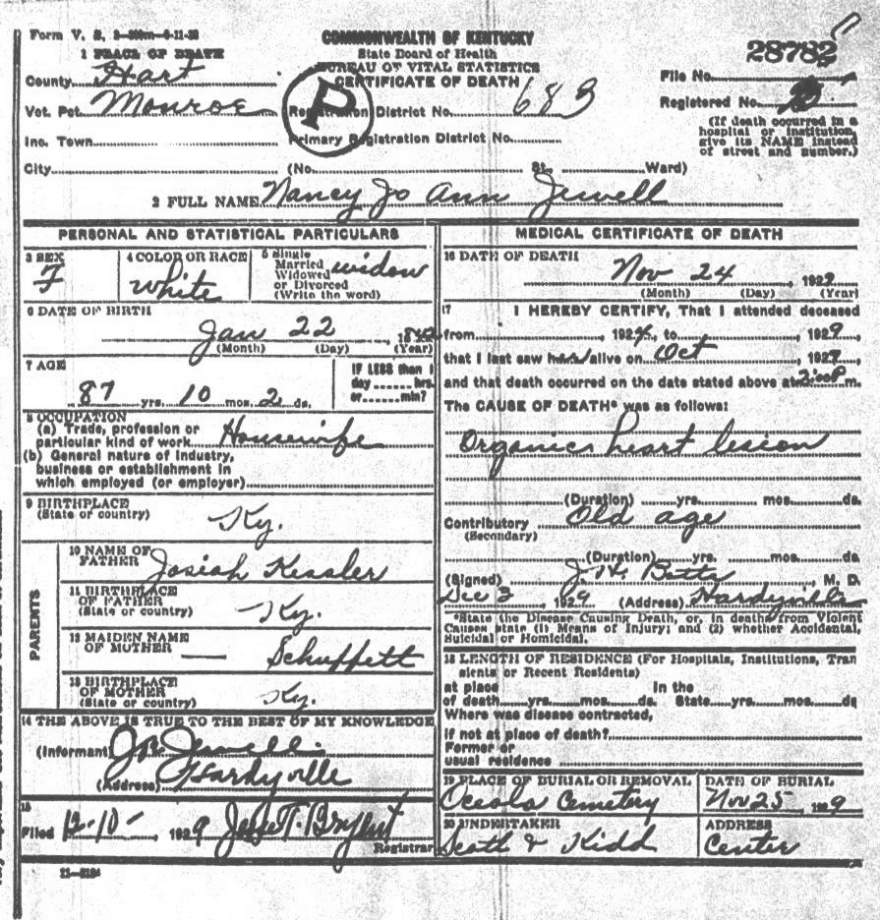 Form V. S.
COMMONWEALTH OF KENTUCKY
State Board of Health
BUREAU OF VITAL STATISTICS
CERTIFICATE OF DEATH
28782
File No.
Registered No.
(If death occurred in a
hospital or institution,
give its NAME instead
of street and number.)
1 PLACE OF DEATH
County Hart
Vot. Pct. Monroe
P
Registration District No. 683
Inc. Town
Primary Registration District No.
City (No. St., Ward)
2 FULL NAME Nancy Jo Ann Jewell
PERSONAL AND STATISTICAL PARTICULARS
3 SEX
F
4 COLOR OR RACE
White
5 Single
Married
Widowed
or Divorced
(Write the word)
widow
6 DATE OF BIRTH
Jan 22
(Month) (Day) (Year)
7 AGE
87 yrs. 10 mos. 2 ds.
IF LESS than 1
day hrs.
or min?
8 OCCUPATION
(a) Trade, profession or
particular kind of work Housewife
(b) General nature of industry,
business or establishment in
which employed (or employer)
9 BIRTHPLACE
(State or country)
Ky.
PARENTS
10 NAME OF
FATHER
Josiah Kessler
11 BIRTHPLACE
OF FATHER
(State or country)
Ky.
12 MAIDEN NAME
OF MOTHER
Schuffett
13 BIRTHPLACE
OF MOTHER
(State or country)
Ky.
14 THE ABOVE IS TRUE TO THE BEST OF MY KNOWLEDGE
(Informant) Jewell
(Address) Hardyville
15
Filed 12-10-, 1929 T. Bryant
Registrar
11-3184
MEDICAL CERTIFICATE OF DEATH
16 DATE OF DEATH
Nov 24, 1929
(Month) (Day) (Year)
17 I HEREBY CERTIFY, That I attended deceased
from , 192 , to , 1929
that I last saw alive on Oct , 1929
and that death occurred on the date stated above at m.
The CAUSE OF DEATH* was as follows:
Organic heart lesion
(Duration) yrs. mos. ds.
Contributory Old age
(Secondary)
(Duration) yrs. mos. ds
(Signed) J. H. Botts, M. D.
Dec 3, 1929 (Address) Hardyville
*State the Disease Causing Death, or, in deaths from Violent
Causes state (1) Means of Injury; and (2) whether Accidental,
Suicidal or Homicidal.
18 LENGTH OF RESIDENCE (For Hospitals, Institutions, Tran
sients or Recent Residents)
at place In the
of death yrs. mos. ds. State yrs. mos. ds
Where was disease contracted,
if not at place of death?
Former or
usual residence
19 PLACE OF BURIAL OR REMOVAL
Oceola Cemetery
DATE OF BURIAL
Nov 25, 1929
20 UNDERTAKER
Scott & Kidd
ADDRESS
Center